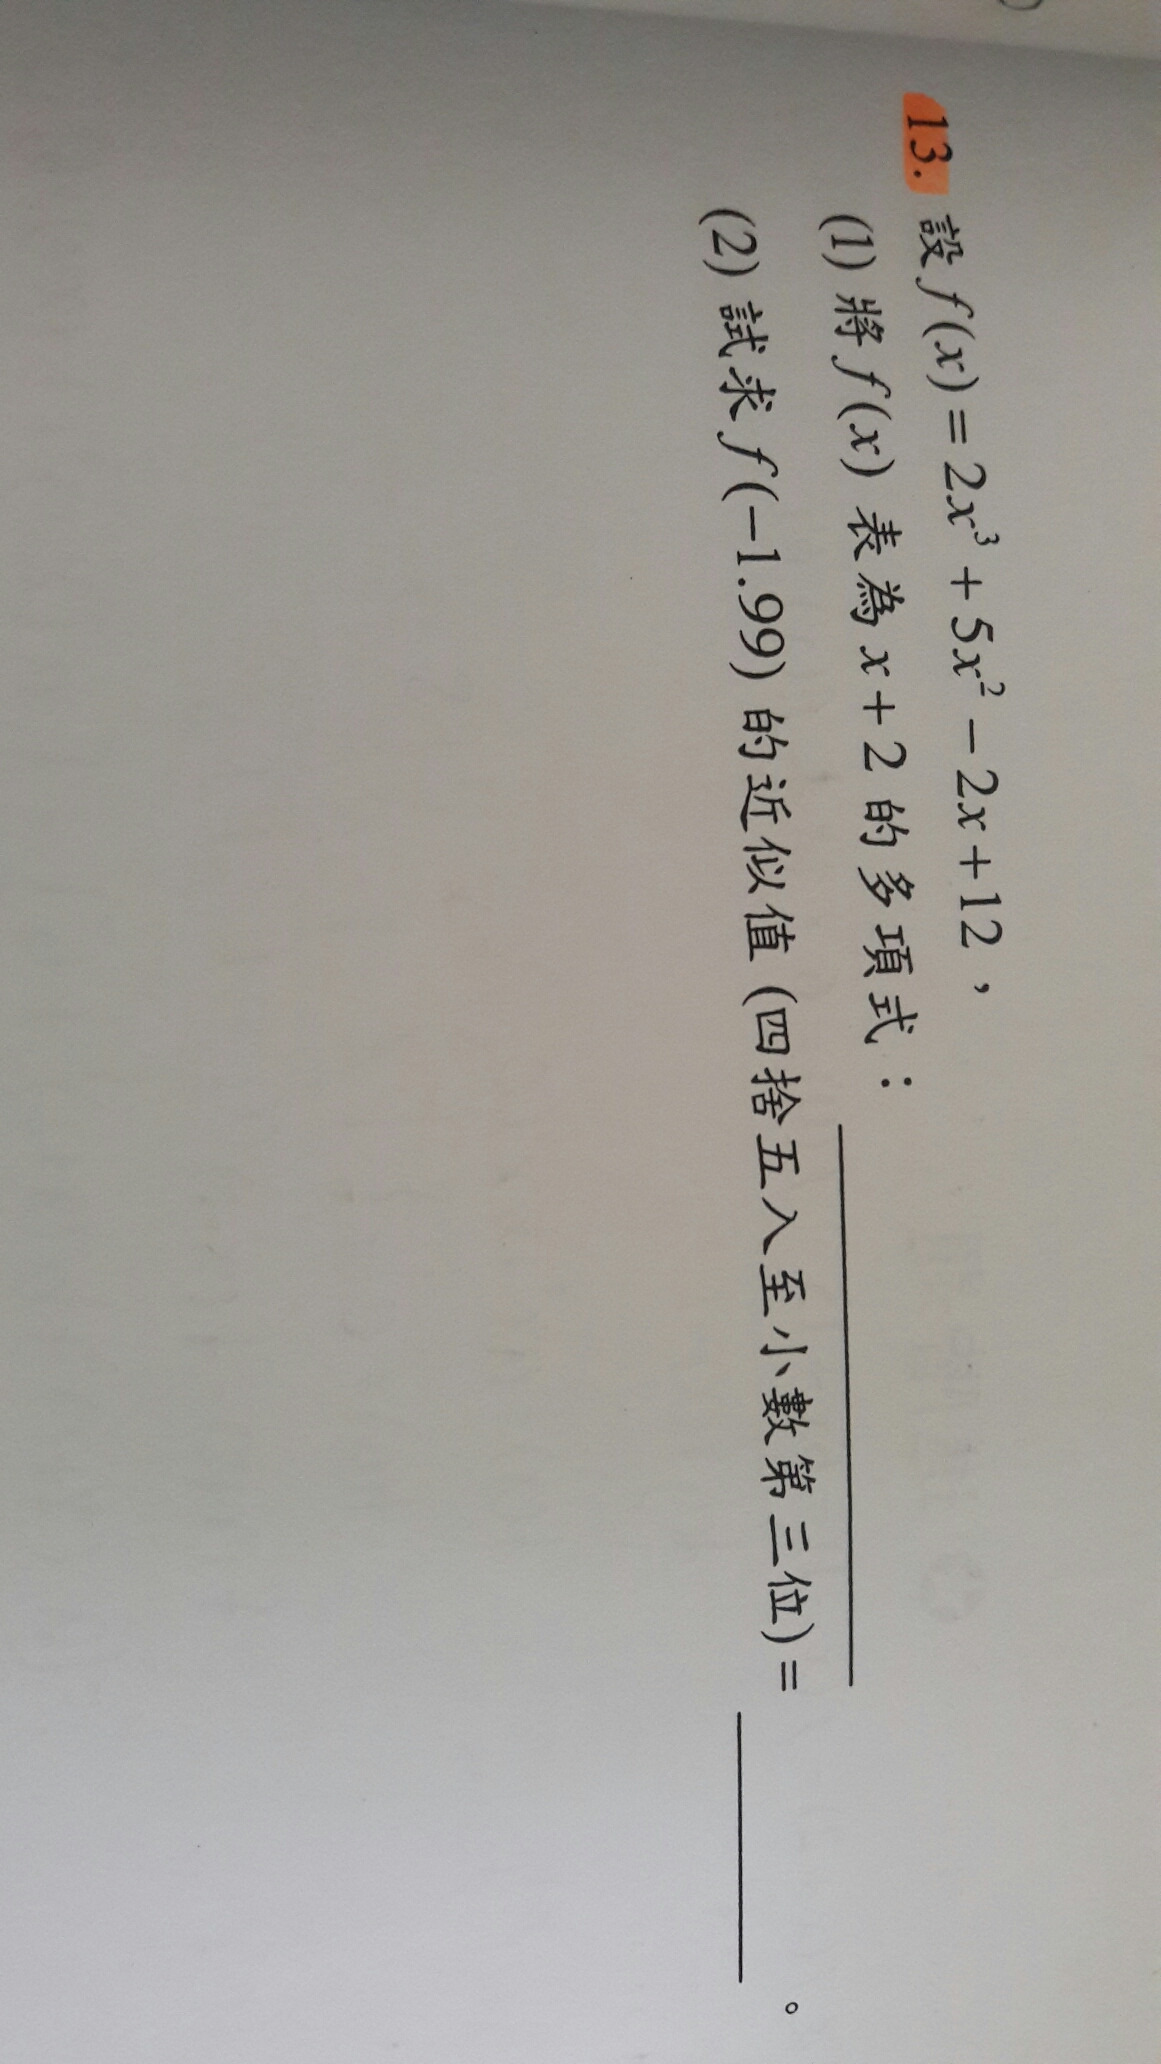 13. 設 f(x)=2x³+5x²-2x+12，
(1) 將 f(x) 表為 x+2 的多項式：
(2) 試求 f(-1.99) 的近似值 (四捨五入至小數第三位)= 。